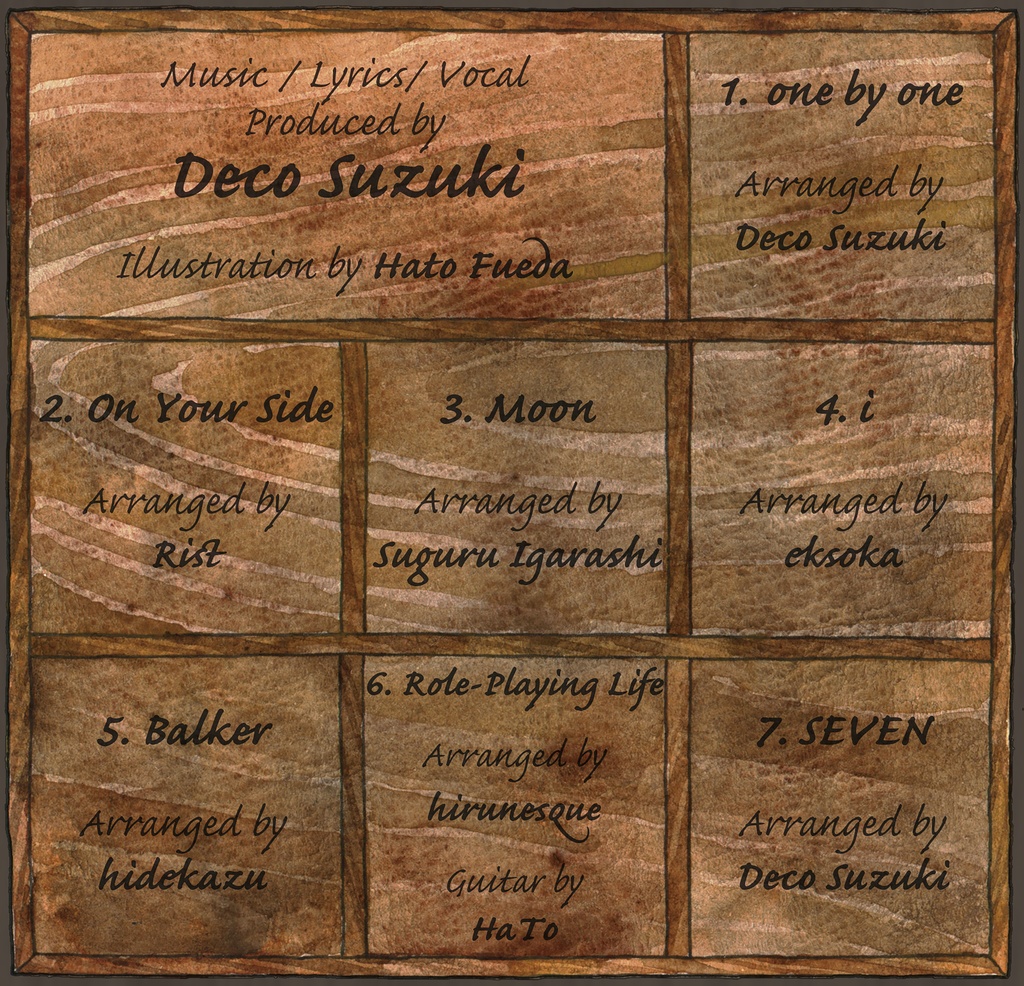 Music / Lyrics/ Vocal
Produced by
Deco Suzuki
Illustration by Hato Fueda
1. one by one
Arranged by
Deco Suzuki
2. On Your Side
Arranged by
Rist
3. Moon
Arranged by
Suguru Igarashi
4. i
Arranged by
eksoka
5. Balker
Arranged by
hidekazu
6. Role-Playing Life
Arranged by
hirunesque
Guitar by
HaTo
7. SEVEN
Arranged by
Deco Suzuki